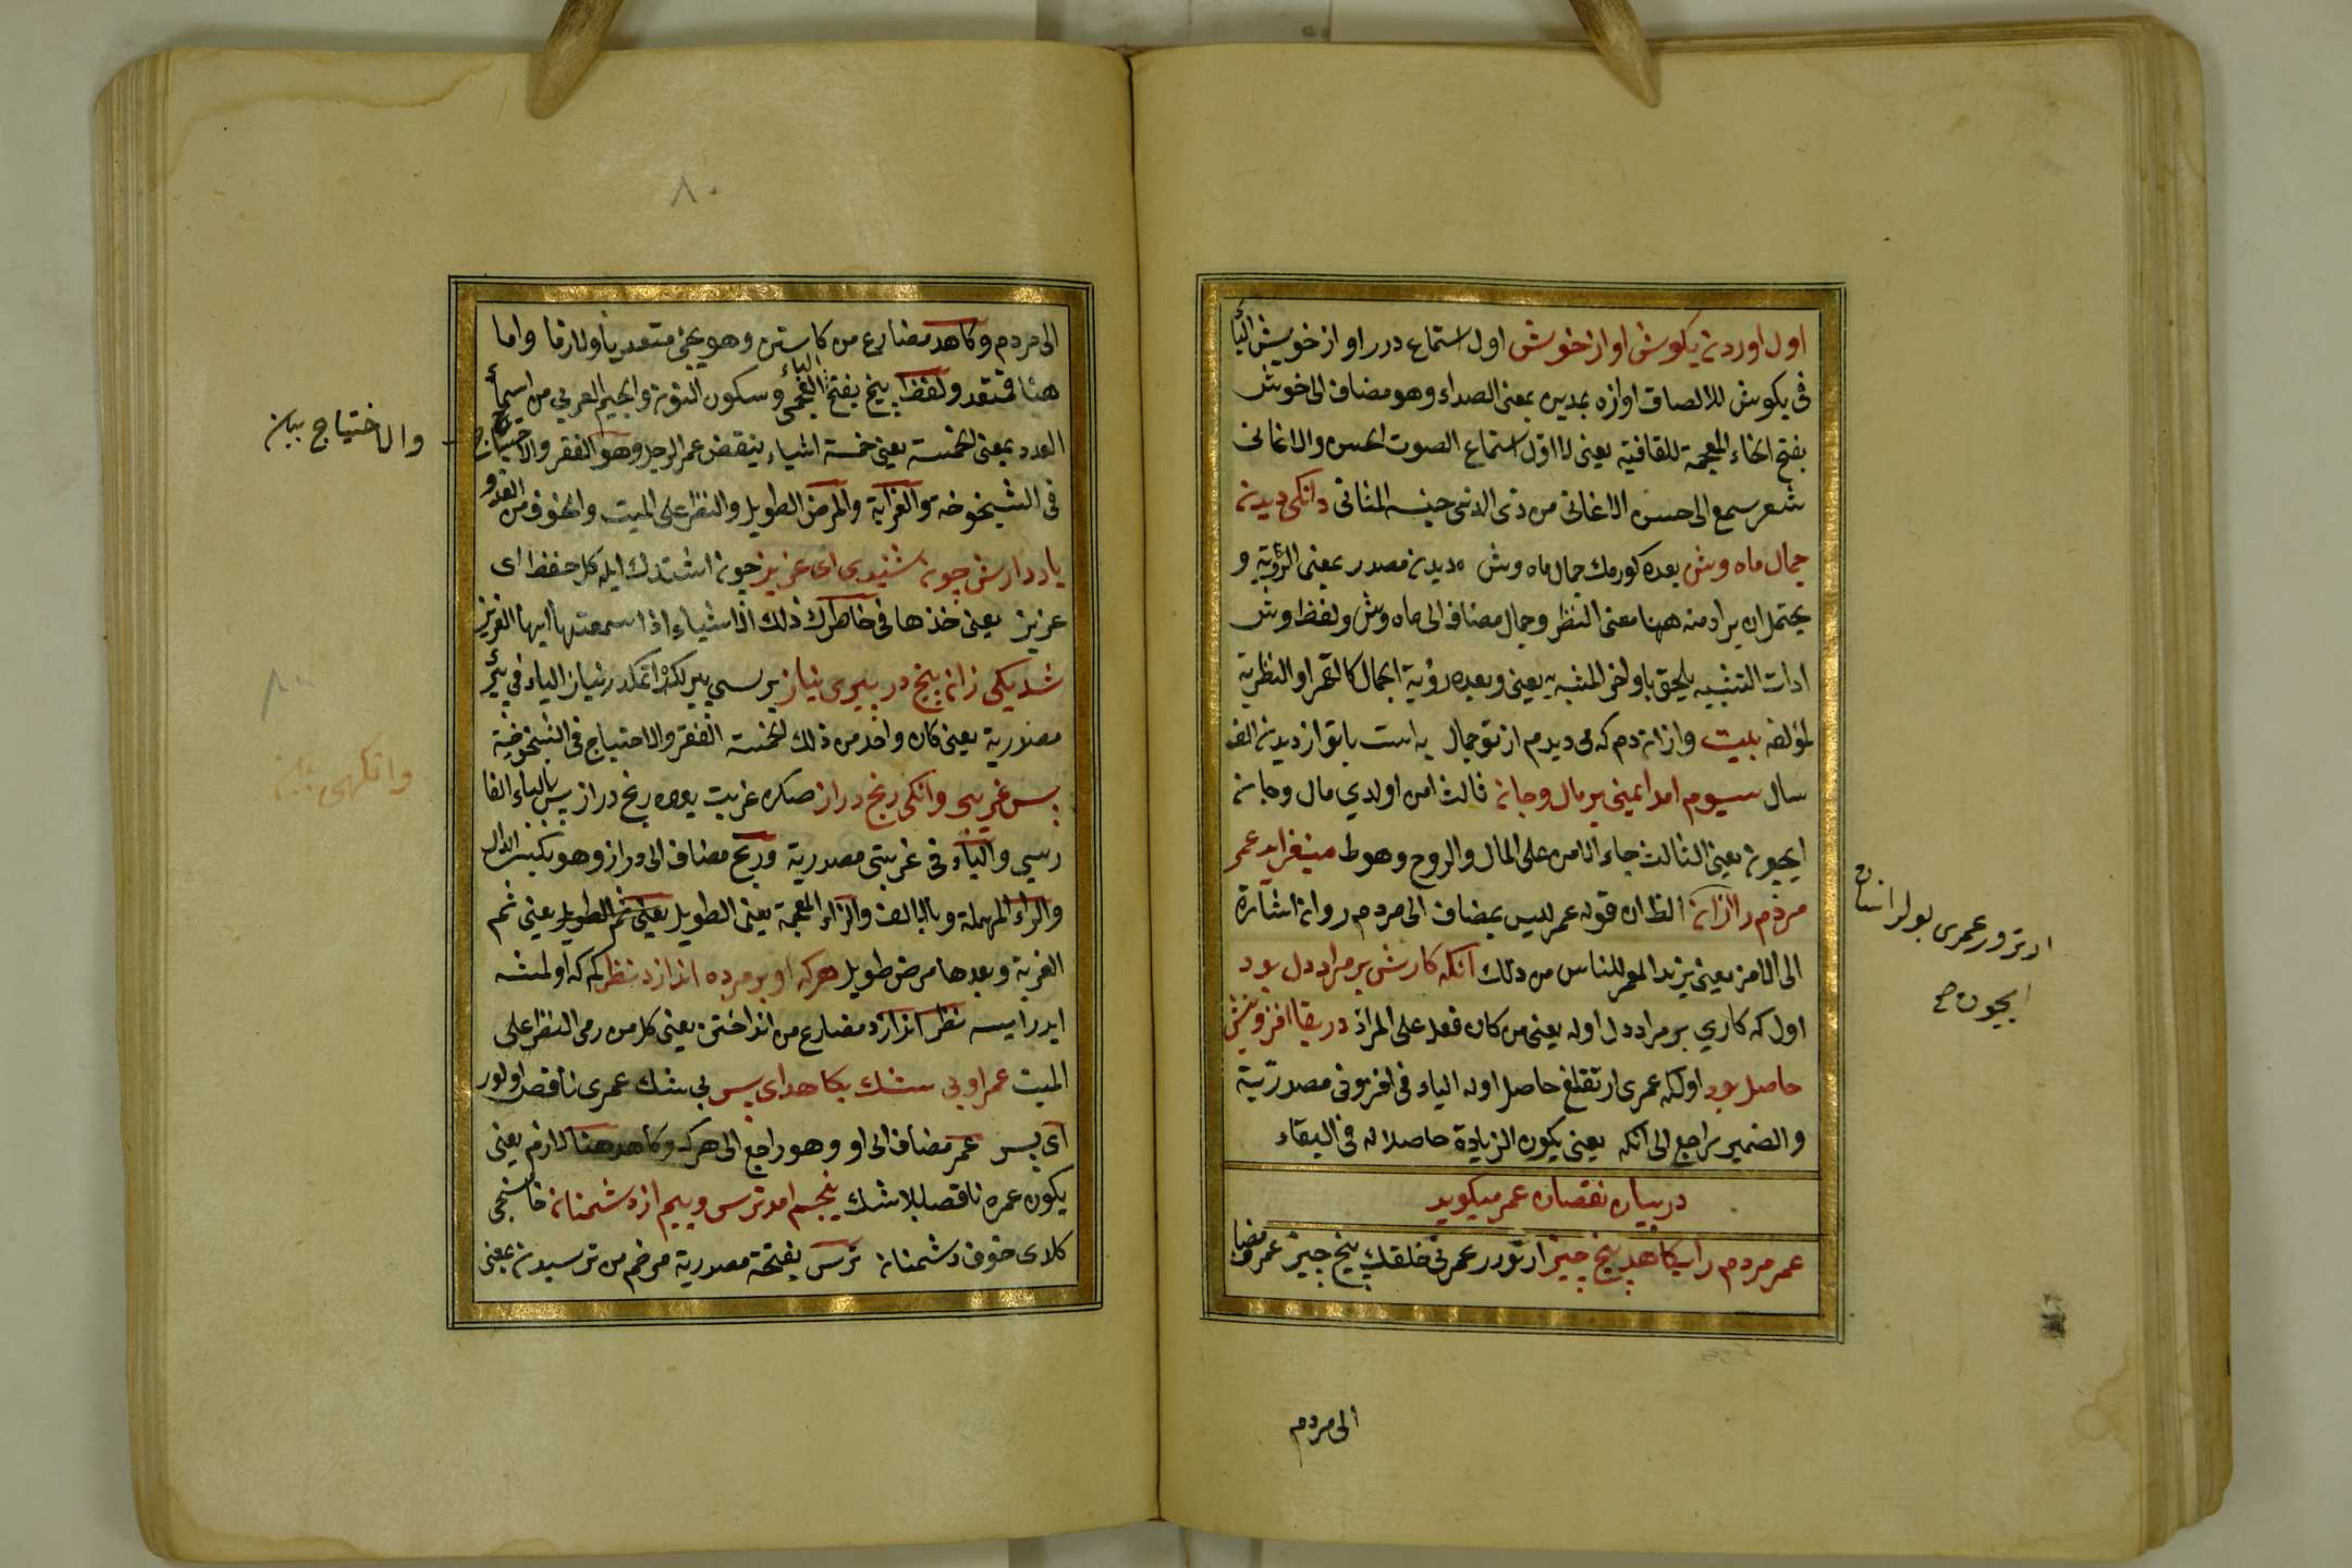 اول اوردن بكوش اواز خوش اول استماع در راواز خويش الباٴ
فى بكوش للالصاق اوازه بمعنى الصداء وهو مضاف الى خويش
بفتح الخاء المعجمة للقافية يعنى لا اول استماع الصوت الحسن والاغانى
شعر سمع الى حسن الاغانى من ذى الدنى المثانى دانكى ديدن
جمال ماه وش بعده كورمك جمال ماه وش ديدن مصدر بمعنى الرؤية و
يحتمل ان يراد منه ههنا معنى النظر وجمال مضاف الى ماه وش ولفظ وش
ادات التشبيه يلحق باواخر المشبه به يعنى وبعده رؤية الجمال كالقمر او النظر به
لمؤلفه بيت وازان دم كه مى ديدم از تو جمال به است با تو از ديدن الف
سال سيوم امد ايمنى بر مال وجان ثالث امن اولدي مال وجان
ايچون يعنى الثالث جاء الامن على المال والروح وهوط ميفزايد عمر
مردم را زان الظ ان قوله عمر ليس بمضاف الى مردم روان اشارة
الى الامن يعنى يزيد العمر للناس من ذلك آنكه كارش بر مراد دل بود
اول كه كاري بر مراد دل اوله يعنى من كان فعله على المراد در بقا افزونيش
حاصل بود اولكه عمرى ارتقلغ حاصل اوله الياء فى افزونى مصدرية
والضمير راجع الى آنكه يعنى يكون الزيادة حاصلا له فى البقاء
در بيان نقصان عمر ميكويد
عمر مردم را بكاهد پنج چيز ارتورر عمرنى خلقك پنج چيز عمر مضا
الى مردم
ارترور عمرى بولر انسان
ايچون صح
الى مردم وكاهد مضارع من كاستن وهو يجئ متعديا ولازما واما
هنا فمتعد ولفظ پنج بفتح الباٴ العجمى وسكون النون والجيم العربى من اسماٴ
العدد بمعنى الخمسة يعنى خمسة اشياء ينقض عمر الرجل وهو الفقر والاحتياج
فى الشيخوخة والغرابة والمرض الطويل والنظر على الميت والخوف من العدو
ياد دارش چون شنيدى اى عزيز چون اشتدك ايله كل حفظ اى
عزيز يعنى خذها فى خاطرك ذلك الاشياء اذا سمعتها ايها العزيز
شد يكى زان پنج در پيرى نياز برسى پيرلكده اتمكدر نياز الياء فى پير
مصدرية يعنى كان واحد من ذلك الخمسة الفقر والاحتياج فى الشيخوخة
پس غريبى وانكهى رنج دراز صكره غربت بعده رنج دراز پس بالباء الفا
رسي والياء فى غريبى مصدرية ورنج مضاف الى دراز وهو بكسر الدال
والراء المهملة وبالالف والزاء المعجمة يعنى الطويل يعنى ثم الطويل يعنى ثم
الغربة وبعدها مرض طويل هركه او بر مرده اندازد نظر كم كه اولمشه
ايدرايسه نظر اندازد مضارع من انداختن يعنى كل من رمى النظر على
الميت عمر او بى شك بكاهد اى پسر بى شك عمرى ناقص اولور
اى پسر عمر مضاف الى او وهو راجع الى هركه وكاهد هنا لازم يعنى
يكون عمره ناقصا بلا شك پنجم امد ترس وبيم از دشمنان خامسجى
كلدى خوف دشمنان ترس بفتحة مصدرية مرخم من ترسيدن بمعنى
والاختياج بيان
وانكهى بيان
٨٠